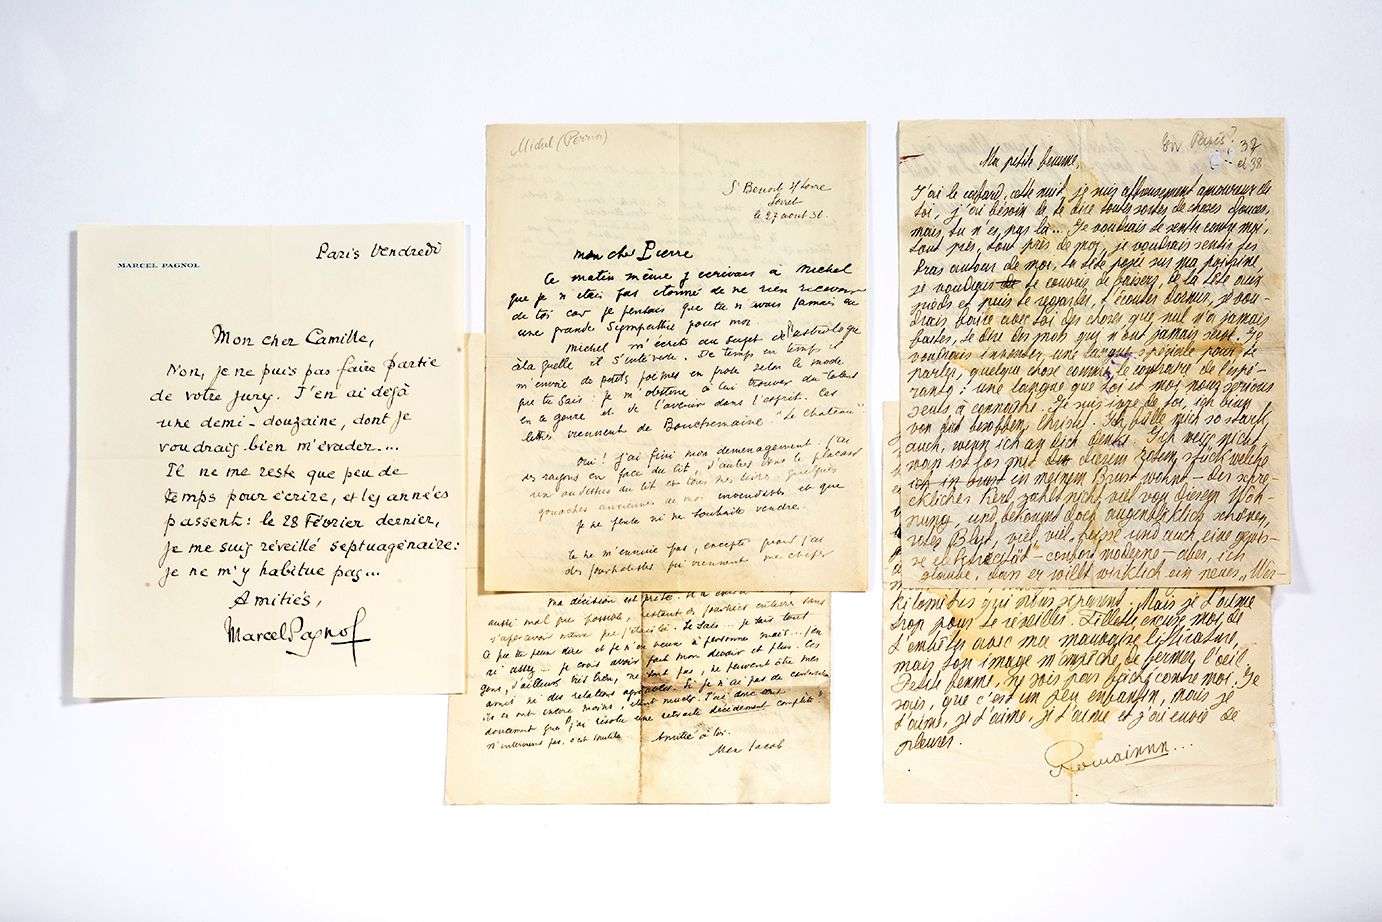 MARCEL PAGNOL
Paris Vendredi
Mon cher Camille,
Non, je ne puis pas faire partie
de votre jury. J'en ai déjà
une demi-douzaine, dont je
voudrais bien m'évader...
Il ne me reste que peu de
temps pour écrire, et les années
passent: le 28 Février dernier,
je me suis réveillé septuagénaire:
je ne m'y habitue pas...
Amitiés,
Marcel Pagnol
Michel (Perrin)
St Benoit s/ Loire
Loiret
le 27 aout 36.
mon cher Pierre
Ce matin même j'ecrivais à Michel
que je n'etais pas etonné de ne rien recevoir
de toi car je pensais que tu n'avais jamais eu
une grande sympathie pour moi.
Michel m'écrit au sujet de l'astrologie
à laquelle il s'intéresse. De temps en temps il
m'envoie de petits poèmes en prose selon le mode
que tu sais: je m'obstine à lui trouver du talent
en ce genre et de l'avenir dans l'esprit. Ces
lettres viennent de "Le Chateau"
Oui! j'ai fini mon demenagement. J'ai
des rayons en face du lit, d'autres
au dessus du lit et tous mes livres. quelques
gouaches anciennes de moi invendables et que
je ne pense ni ne souhaite vendre.
Je ne m'ennuie pas, excepté quand j'ai
des journalistes qui viennent me
Ma décision est prise.
aussi mal que possible,
s'apercevoir même que j'existe. Je sais... je sais tout
ce que tu peux dire et je n'en veux à personne mais... j'en
ai assez... je crois avoir fait mon devoir et plus. Ces
gens, d'ailleurs très bien, ne sont pas, ne peuvent être mes
amis ni des relations agréables. Si je n'ai pas de
ils en ont encore moins, J'ai donc
doucement que j'ai résolu une retraite décidément complète!
N'interviens pas, c'est inutile.
Amitié à toi.
Max Jacob
En Paris? 37
et 38
Ma petite femme,
J'ai le cafard, cette nuit, je suis affreusement amoureux de
toi, j'ai besoin de te dire toutes sortes de choses douces,
mais, tu n'es pas là... Je voudrais te sentir contre moi,
tout près, tout près de moi, je voudrais sentir tes
bras autour de moi, ta tête posée sur ma poitrine
je voudrais te couvrir de baisers, de la tête aux
pieds et puis te regarder, t'écouter dormir, je vou-
drais faire avec toi des choses que nul n'a jamais
faites, te dire des mots qui n'ont jamais servi. Je
voudrais inventer une langue spéciale pour te
parler, quelque chose comme le contraire de l'espé-
ranto: une langue que toi et moi nous serions
seuls à connaître. Je suis ivre de toi, ich bin
von dir besoffen, Christel. Ich fühle mich so stark
auch, wenn ich an dich denke. Ich weiß nicht
was ist los mit diesem roten Stück welche
in meinem Brust wohnt - der schre-
ckliches Kerl zahlt nicht viel von diesem Woh-
nung, und bekommt doch augenblicklich schönen,
rotes Blut, viel, viel, heisse und auch, eine gewis-
se elektricität - confort moderne - aber, ich
glaube, dass er will wirklich ein neues
kilomètres qui nous séparent. Mais je t'aime
trop pour te réveiller. Fillette, excuse-moi, de
t'embêter avec ma mauvaise littérature,
mais ton image m'empêche de fermer l'œil
Petite femme, je suis pas fâchée contre moi. Je
sais, que c'est un peu enfantin, mais je
t'aime, je t'aime, je t'aime et j'ai envie de
pleurer.
Romainnn...